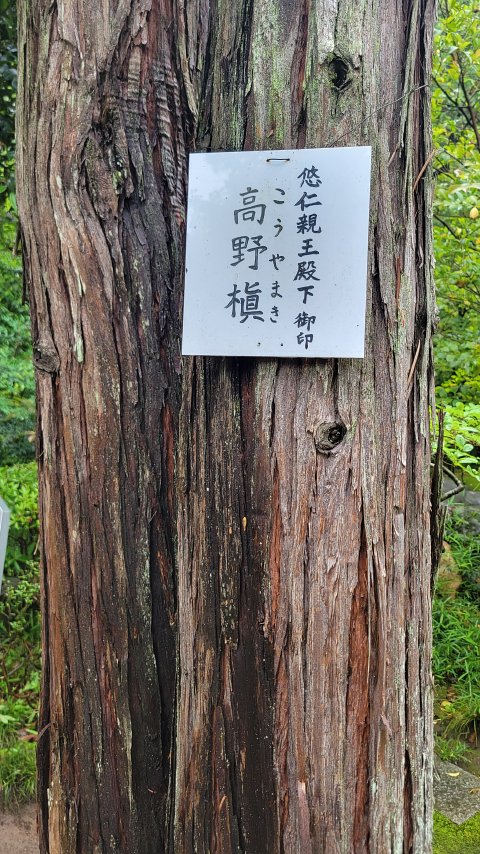 悠仁親王殿下 御印
こうやまき
高野槇